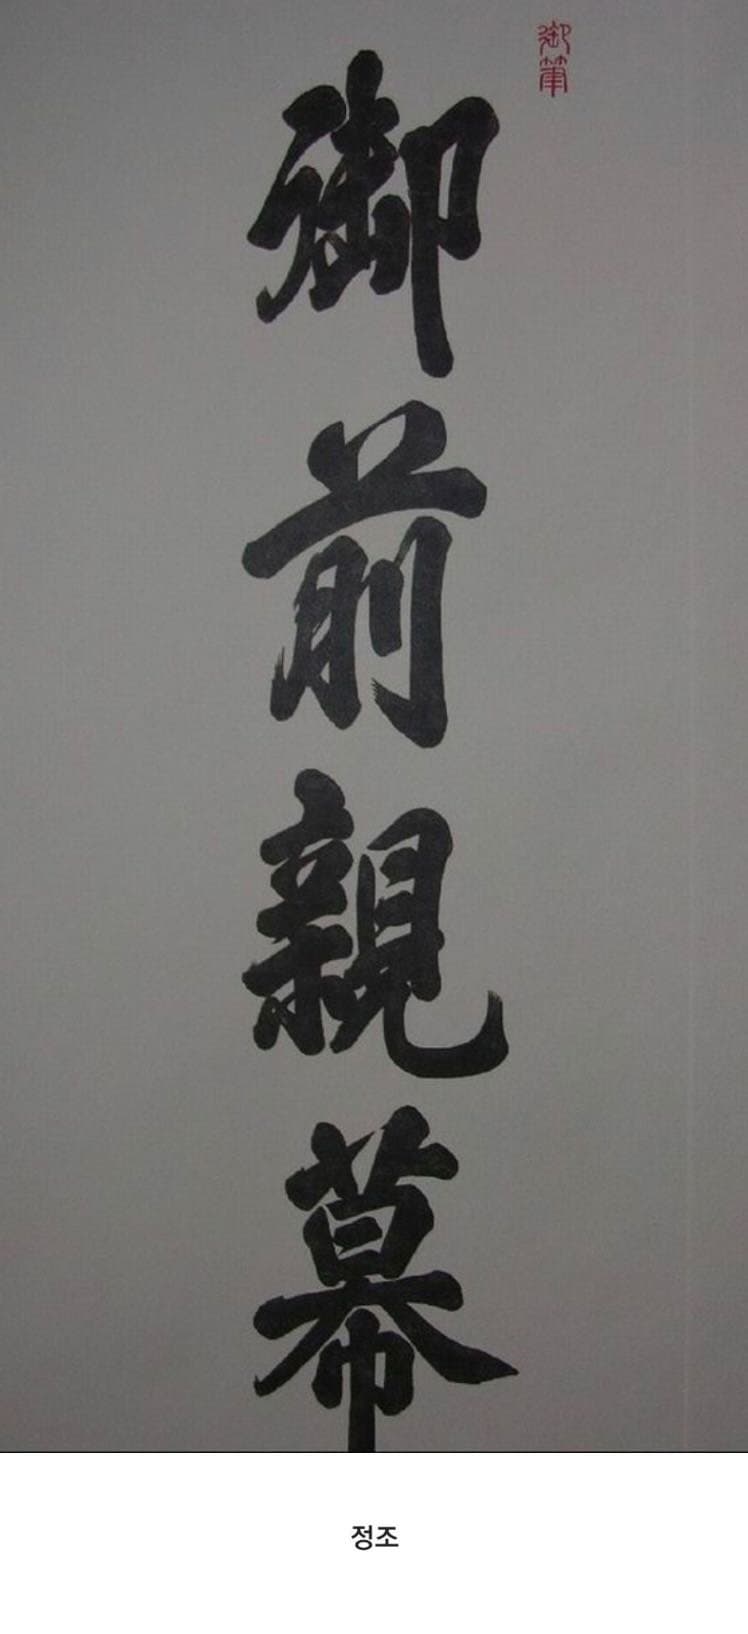 御筆
御前親幕
정조